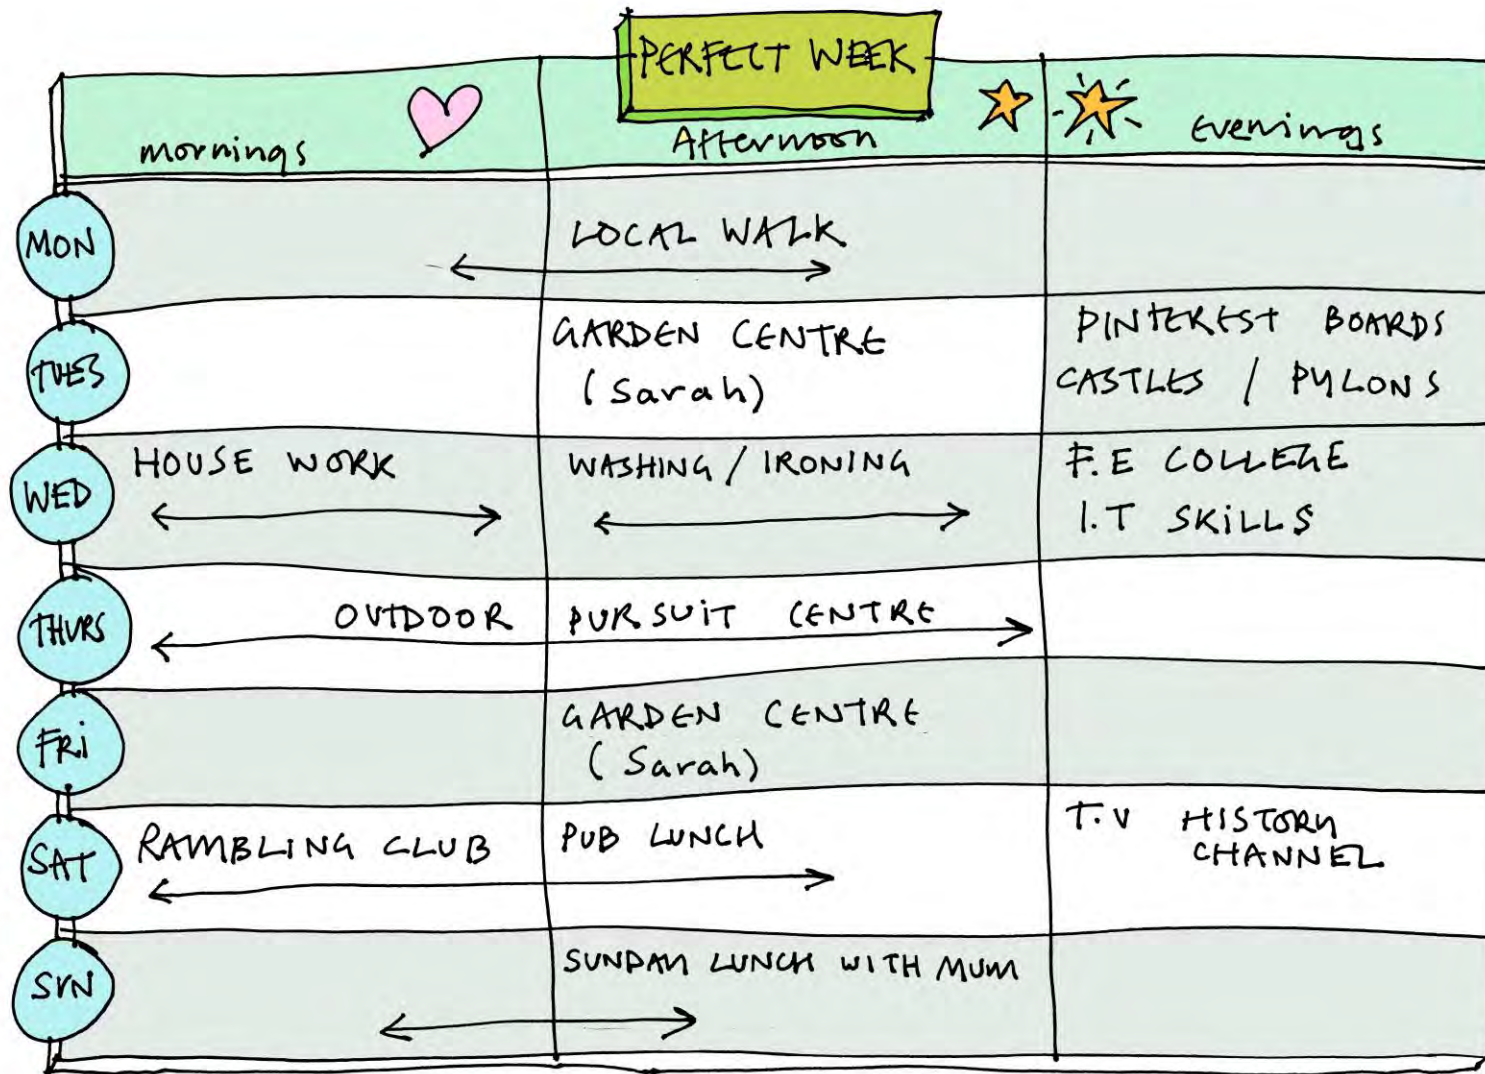 PERFECT WEEK
mornings
Afternoon
Evenings
MON
LOCAL WALK
TUES
GARDEN CENTRE
(Sarah)
PINTEREST BOARDS
CASTLES / PYLONS
WED
HOUSE WORK
WASHING / IRONING
F.E COLLEGE
I.T SKILLS
THURS
OUTDOOR PURSUIT CENTRE
FRI
GARDEN CENTRE
(Sarah)
SAT
RAMBLING CLUB
PUB LUNCH
T.V HISTORY
CHANNEL
SUN
SUNDAY LUNCH WITH MUM